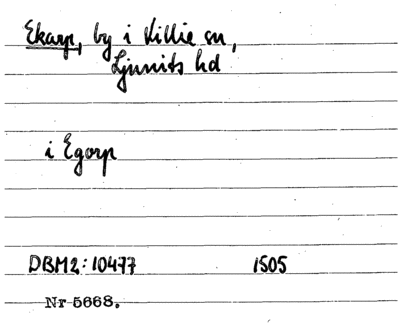 Ekarp, by i Villie sn,
Ljunits hd
i Egorp
DBM2:10477 1505
Nr 5668.